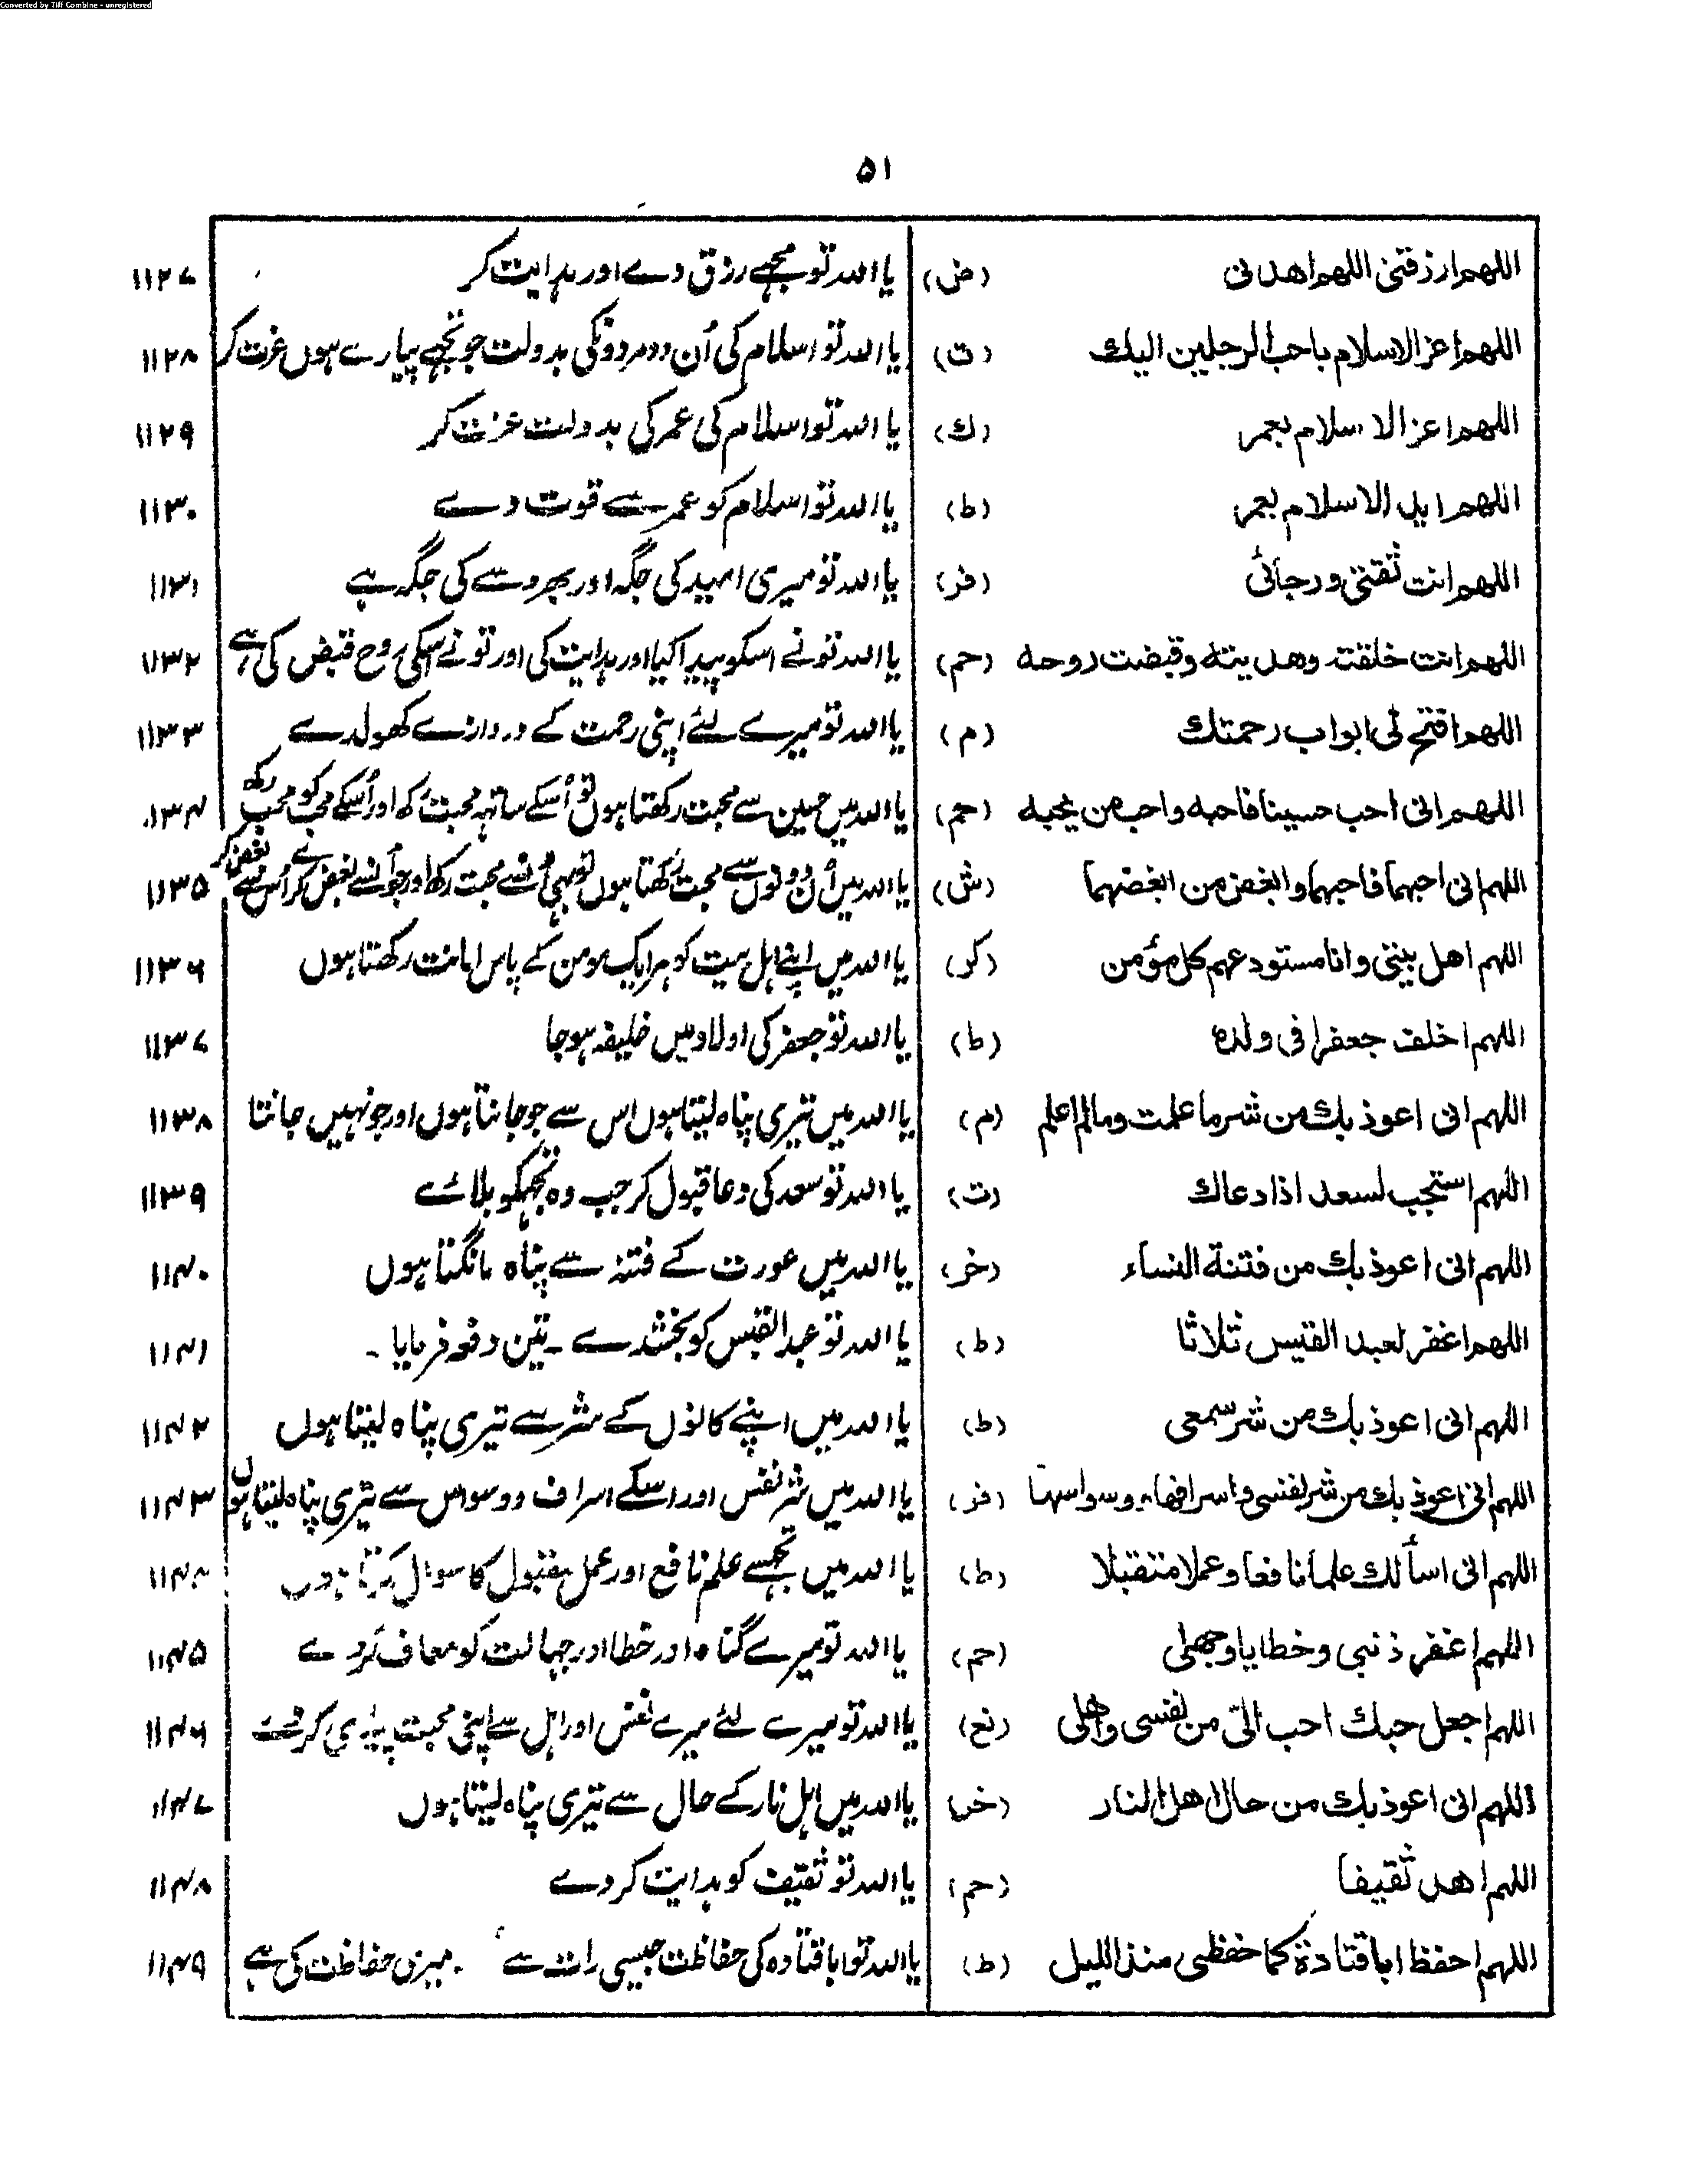 Converted by Tiff Combine - unregistered
۵۱
اللهم ارزقنی اللهم اهدنی (ض) یا اللہ تو مجھے رزق دے اور ہدایت کر ۱۱۲۷
اللهم اعز الاسلام باحب الرجلین الیك (ت) یا اللہ تو اسلام کی اُن دو مردونکی بدولت جو تجھے پیارے ہوں عزت کر ۱۱۲۸
اللهم اعز الاسلام بعمر (ك) یا اللہ تو اسلام کی عمر کی بدولت عزت کر ۱۱۲۹
اللهم اید الاسلام بعمر (ط) یا اللہ تو اسلام کو عمر سے قوت دے ۱۱۳۰
اللهم انت ثقتی ورجائی (فر) یا اللہ تو میری امید کی جگہ اور بھروسے کی جگہ ہے ۱۱۳۱
اللهم انت خلقته وهدیته وقبضت روحه (حم) یا اللہ تو نے اسکو پیدا کیا اور ہدایت کی اور تو نے اسکی روح قبض کی ہے ۱۱۳۲
اللهم افتح لی ابواب رحمتك (م) یا اللہ تو میرے لئے اپنی رحمت کے دروازے کھولدے ۱۱۳۳
اللهم انی احب حسینا فاحبه واحب من یحبه (حم) یا اللہ میں حسین سے محبت رکھتا ہوں تو اُسکے ساتھ محبت رکھ اور اُسکے محب کو محب رکھ ۱۱۳۴
اللهم انی احبهما فاحبهما وابغض من ابغضهما (ش) یا اللہ میں اُن دونوں سے محبت رکھتا ہوں تو بھی اُنسے محبت رکھ اور جو اُنسے بغض کرے اُس سے بغض کر ۱۱۳۵
اللهم اهل بیتی وانا مستودعهم کل مؤمن (کر) یا اللہ میں اپنے اہل بیت کو ہر ایک مومن کے پاس امانت رکھتا ہوں ۱۱۳۶
اللهم اخلف جعفرا فی ولده (ط) یا اللہ تو جعفر کی اولاد میں خلیفہ ہوجا ۱۱۳۷
اللهم انی اعوذ بك من شر ما علمت وما لم اعلم (م) یا اللہ میں تیری پناہ لیتا ہوں اس سے جو جانتا ہوں اور جو نہیں جانتا ۱۱۳۸
اللهم استجب لسعد اذا دعاك (ت) یا اللہ تو سعد کی دعا قبول کر جب وہ تجھکو بلائے ۱۱۳۹
اللهم انی اعوذ بك من فتنة النساء (خر) یا اللہ میں عورت کے فتنہ سے پناہ مانگتا ہوں ۱۱۴۰
اللهم اغفر لعبد القیس ثلاثا (ط) یا اللہ تو عبد القیس کو بخشدے ۔ تین دفعہ فرمایا ۔ ۱۱۴۱
اللهم انی اعوذ بك من شر سمعی (ط) یا اللہ میں اپنے کانوں کے شر سے تیری پناہ لیتا ہوں ۱۱۴۲
اللهم انی اعوذ بك من شر نفسی واسرافها ووسواسها (فر) یا اللہ میں شر نفس اور اسکے اسراف ووسواس سے تیری پناہ لیتا ہوں ۱۱۴۳
اللهم انی اسألك علما نافعا وعملا متقبلا (ط) یا اللہ میں تجھسے علم نافع اور عمل مقبول کا سوال کرتا ہوں ۱۱۴۴
اللهم اغفر ذنبی وخطایا وجهلی (حم) یا اللہ تو میرے گناہ اور خطا اور جہالت کو معاف کردے ۱۱۴۵
اللهم اجعل حبك احب الیّ من نفسی واهلی (نع) یا اللہ تو میرے لئے میرے نفس اور اہل سے اپنی محبت پیاری کردے ۱۱۴۶
اللهم انی اعوذ بك من حال اهل النار (خر) یا اللہ میں اہل نار کے حال سے تیری پناہ لیتا ہوں ۱۱۴۷
اللهم اهد ثقیفا (حم) یا اللہ تو ثقیف کو ہدایت کردے ۱۱۴۸
اللهم احفظ ابا قتادة کما حفظنی منذ اللیل (ط) یا اللہ تو ابا قتادہ کی حفاظت جیسی رات سے میری حفاظت کی ہے ۱۱۴۹